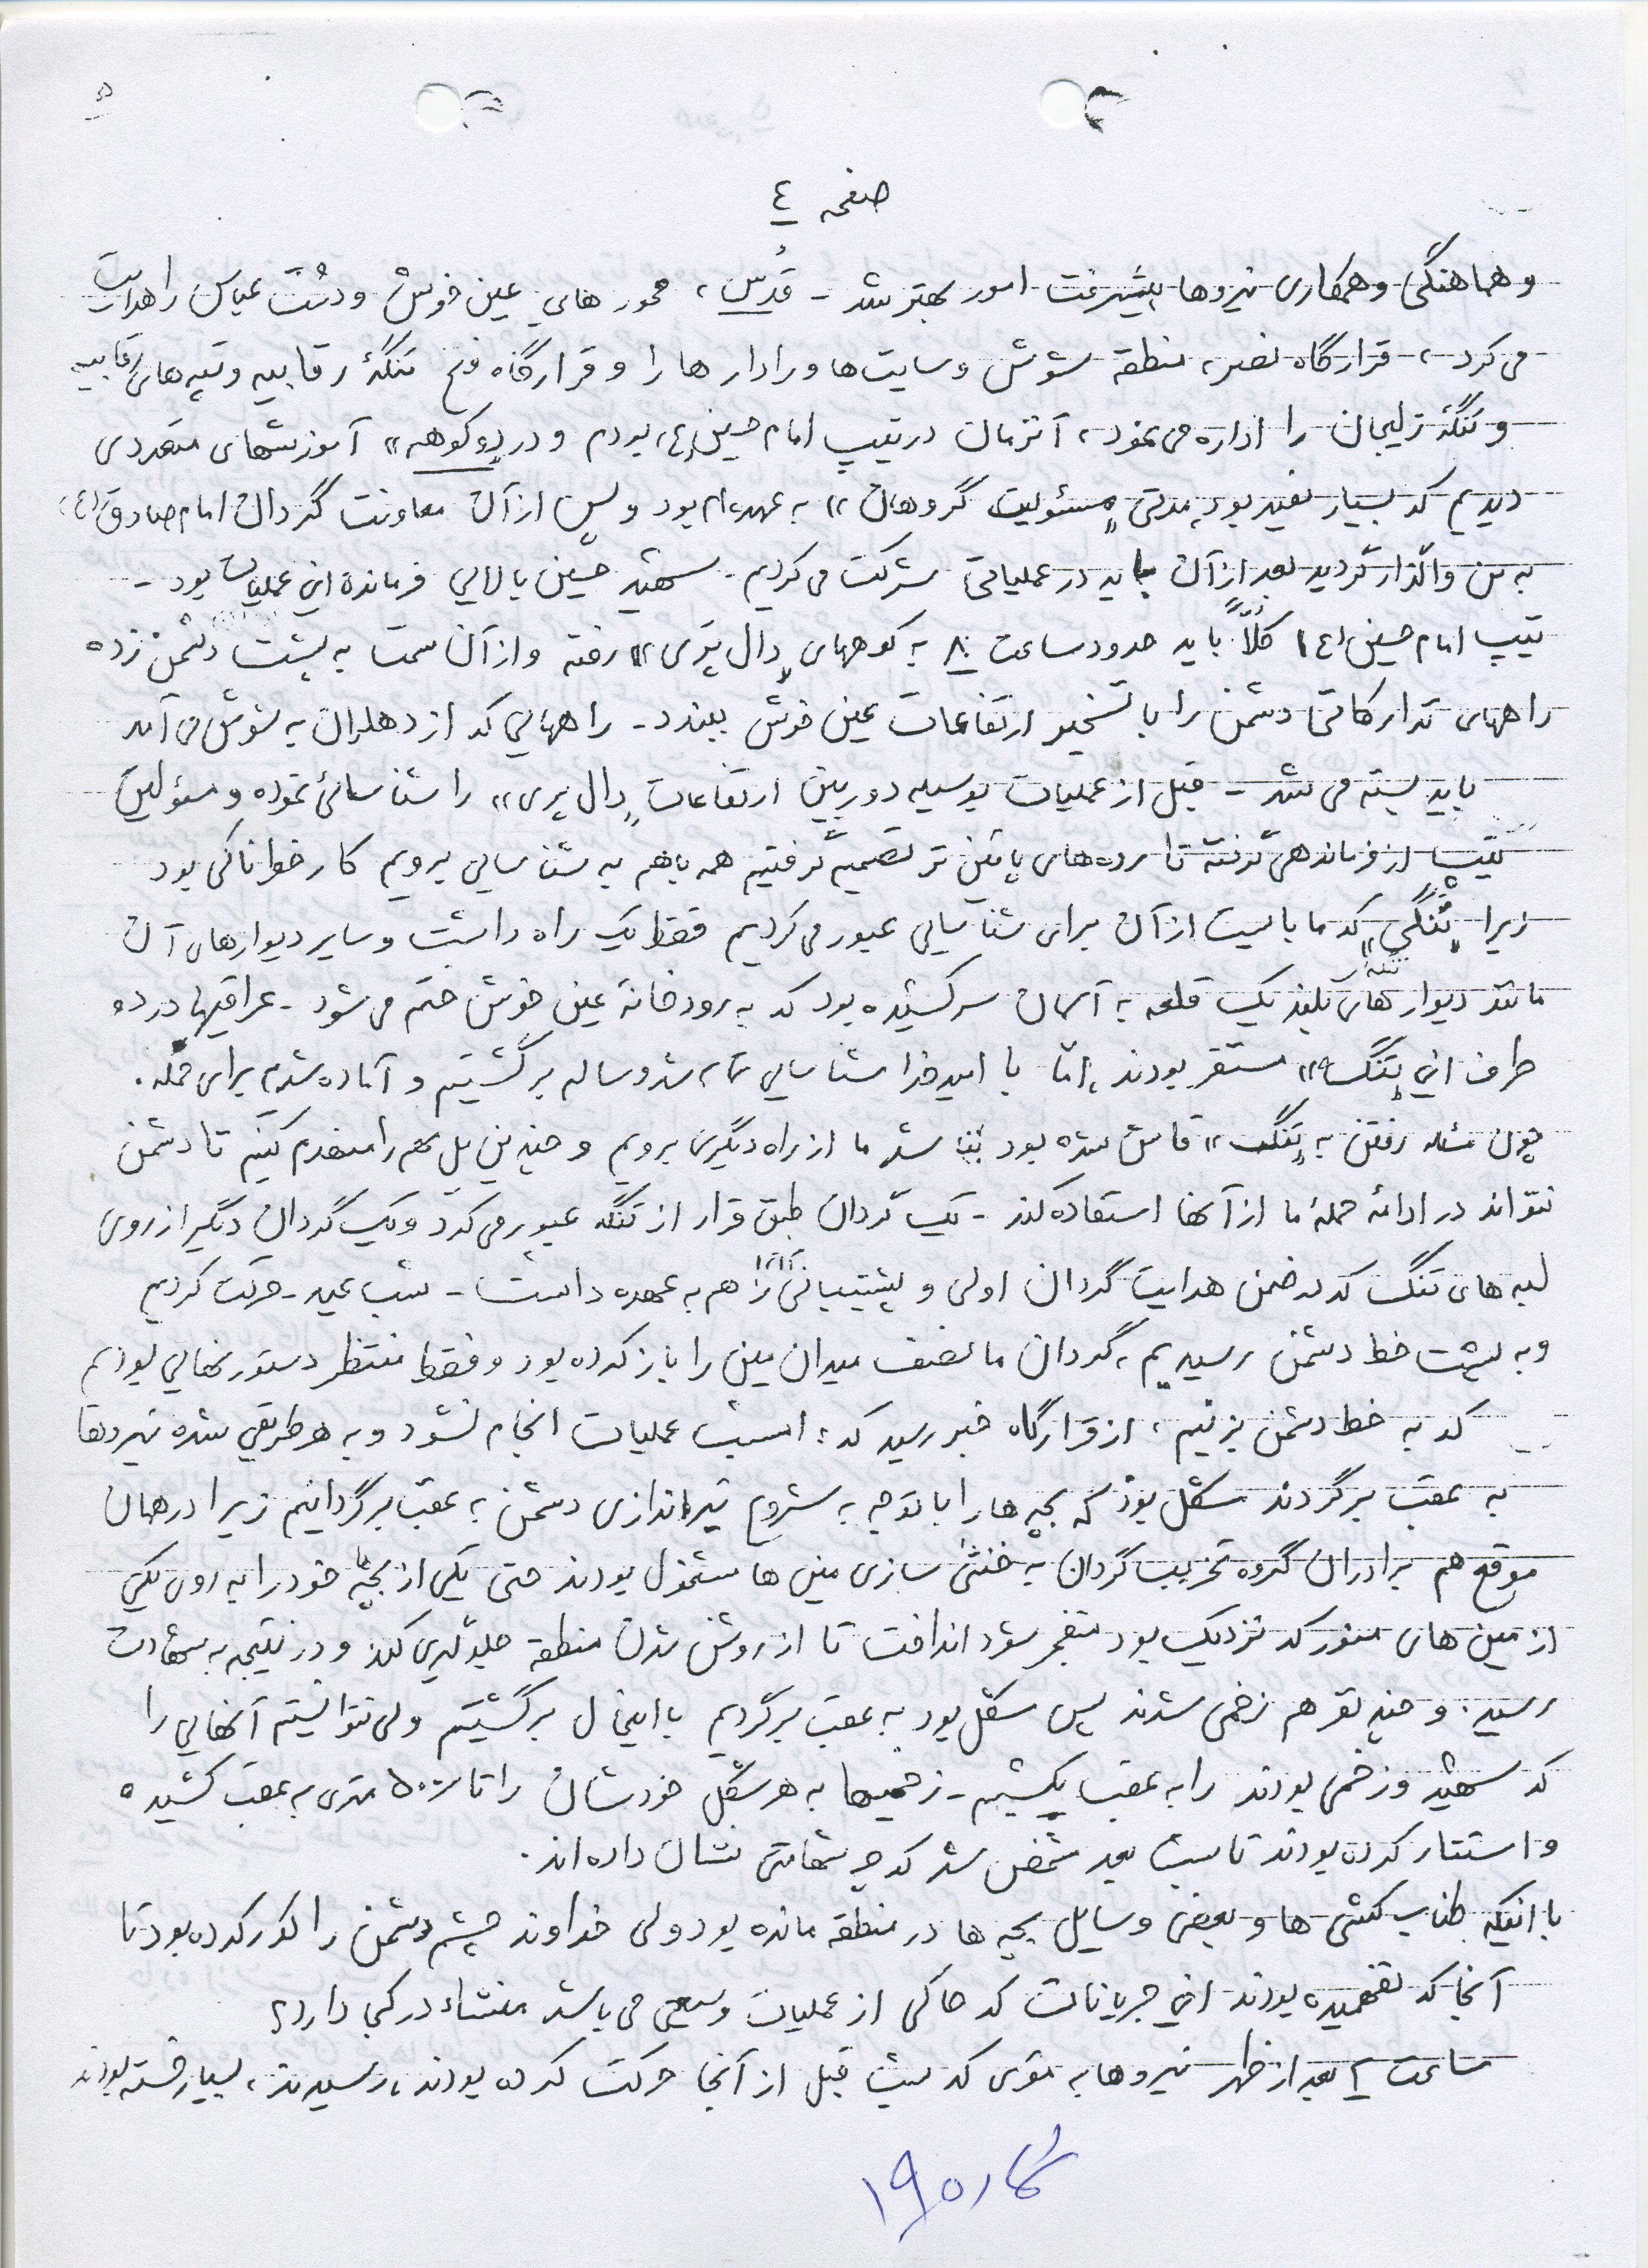 ۵
صفحه ٤
و هماهنگی و همکاری نیروها پیشرفت امور بهتر شد - قُدس، محورهای عین خوش و دشت عباس را هدایت
می‌کرد، قرارگاه نصر، منطقه شوش و سایت‌ها و رادارها را و قرارگاه فتح تنگهٔ رقابیه و تپه‌های رقابیه
و تنگهٔ زلیجان را اداره می‌نمود، آنزمان در تیپ امام حسین (ع) بودم و در «دوکوهه» آموزشهای متعددی
دیدیم که بسیار مفید بود، مدتی «مسئولیت گروهان» به عهده‌ام بود و پس از آن معاونت گردان امام صادق (ع)
به من واگذار گردید بعد از آن باید در عملیاتی شرکت می‌کردیم - شهید حسین بالایی فرماندهٔ این عملیات بود -
تیپ امام حسین (ع) کلاً باید حدود ساعت ۸ به کوههای «دال پَری» رفته و از آن سمت به پشت دشمن زده
راههای تدارکاتی دشمن را با تسخیر ارتفاعات عین خوش ببندد - راههایی که از دهلران به شوش می‌آمد
باید بسته می‌شد - قبل از عملیات بوسیله دوربین ارتفاعات «دال پری» را شناسائی نموده و مسئولین
تیپ از فرماندهی گرفته تا رده‌های پائین تر تصمیم گرفتیم همه باهم به شناسایی برویم کار خطرناکی بود
زیرا «تنگی» که ما بایست از آن برای شناسایی عبور می‌کردیم فقط یک راه داشت و سایر دیوارهای آن
مانند دیوارهای بلند یک قلعه به آسمان سر کشیده بود که به رودخانهٔ عین خوش ختم می‌شود - عراقیها در دو
طرف این «تنگه» مستقر بودند، امّا با امید خدا شناسایی تمام شد و سالم برگشتیم و آماده شدیم برای حمله.
چون مسئله رفتن به «تنگ» فاش شده بود بنا شد ما از راه دیگری برویم و چندین پل هم را منهدم کنیم تا دشمن
نتواند در ادامه حملهٔ ما از آنها استفاده کند - یک گردان طبق قرار از تنگه عبور می‌کرد و یک گردان دیگر از روی
لبه های تنگ که در ضمن هدایت گردان اولی و پشتیبانی آنرا هم به عهده داشت - شب عید - حرکت کردیم
و به پشت خط دشمن رسیدیم، گردان ما نصف میدان مین را باز کرده بود و فقط منتظر دستور نهایی بودیم
که به خط دشمن بزنیم، از قرارگاه خبر رسید که: امشب عملیات انجام نشود و به هر طریقی شده نیروها
به عقب برگردند مشکل بود که بچه ها را با توجه به شروع تیراندازی دشمن به عقب برگردانیم زیرا در همان
موقع هم برادران گروه تخریب گردان به خنثی سازی مین ها مشغول بودند حتی یکی از بچه‌ها خود را به روی یکی
از مین های منور که نزدیک بود منفجر شود انداخت تا از روشن شدن منطقه جلوگیری کند و در نتیجه به شهادت
رسید. و چند نفر هم زخمی شدند پس مشکل بود به عقب برگردیم با اینحال برگشتیم ولی نتوانستیم آنهایی را
که شهید و زخمی بودند را به عقب بکشیم - زخمیها به هر شکل خودشان را تا ۵۰۰ متری به عقب کشیده
و استتار کرده بودند تا شب بعد مشخص شد که چه شهامتی نشان داده‌اند.
با اینکه طناب کشی ها و بعضی وسایل بچه ها در منطقه مانده بود ولی خداوند چشم دشمن را کور کرده بود تا
آنجا که نفهمیده بودند این جریانات که حاکی از عملیات وسیعی می‌باشد منشاء در کجا دارد؟
ساعت ۲ بعد از ظهر نیروها به مقری که شب قبل از آنجا حرکت کرده بودند، رسیدند، بسیار خسته بودند
شماره ۱۹